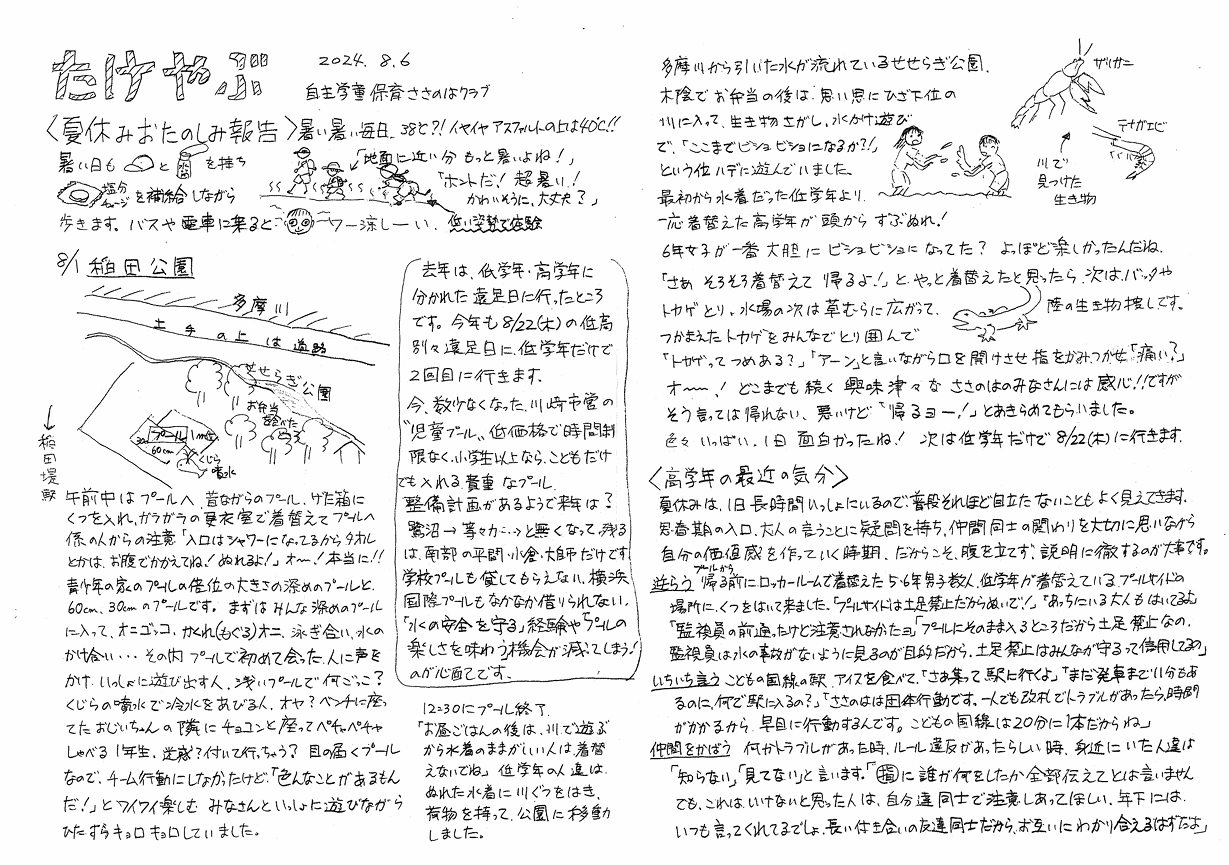 たけやぶ
2024.8.6
自主学童保育ささのはクラブ
〈夏休みおたのしみ報告〉暑い暑い毎日、38と?!イヤイヤアスファルトの上は40℃!!
暑い日も と を持ち
塩分チャージ を補給しながら
歩きます。バスや電車に乗ると ワー涼しーい、
「地面に近い分もっと暑いよね!」
「ホントだ!超暑い!
かわいそうに、大丈夫?」
低い姿勢で体験
8/1 稲田公園
多摩川
土手の上は道路
せせらぎ公園
お弁当食べた
プール 1m位
30cm
60cm
くじら噴水
↓稲田堤駅
午前中はプールへ、昔ながらのプール、げた箱に
くつを入れ、ガラガラの更衣室で着替えてプールへ
係の人からの注意「入口はシャワーになってるからタオル
とかは、お腹でかかえてね!ぬれるよ!」オー!本当に!!
青少年の家のプールの倍位の大きさの深めのプールと、
60cm、30cmのプールです。まずはみんな深めのプール
に入って、オニゴッコ、かくれ(もぐる)オニ、泳ぎ合い、水の
かけ合い・・・その内プールで初めて会った人に声を
かけ、いっしょに遊び出す人、浅いプールで何ごっこ?
くじらの噴水で冷水をあびる人、オヤ?ベンチに座っ
てたおじいちゃんの隣にチョコンと座ってペチャペチャ
しゃべる1年生、迷惑?付いて行っちゃう?目の届くプール
なので、チーム行動にしなかったけど、「色んなことがあるもん
だ!」とワイワイ楽しむみなさんといっしょに遊びながら
ひたすらキョロキョロしていました。
去年は、低学年・高学年に
分かれた遠足日に行ったところ
です。今年も8/22(木)の低高
別々遠足日に、低学年だけで
2回目に行きます。
今、数少なくなった、川崎市営の
"児童プール"、低価格で時間制
限なく、小学生以上なら、こどもだけ
でも入れる貴重なプール。
整備計画があるようで来年は?
鷺沼→等々力・・・っと無くなって、残る
は、南部の平間・小倉・大師だけです
学校プールも貸してもらえない、横浜
国際プールもなかなか借りられない。
「水の安全を守る」経験や「プールの
楽しさを味わう機会が減ってしまう!
のが心配です。
12:30にプール終了。
「お昼ごはんの後は、川で遊ぶ
から水着のままがいい人は、着替
えないでね」低学年の人達は、
ぬれた水着に川ぐつをはき、
荷物を持って、公園に移動
しました。
多摩川から引いた水が流れているせせらぎ公園、
木陰でお弁当の後は、思い思にひざ下位の
川に入って、生き物さがし、水かけ遊び
で、「ここまでビショビショになるか?!」
という位ハデに遊んでいました。
最初から水着だった低学年より、
一応着替えた高学年が頭からずぶぬれ!
ザリガニ
テナガエビ
川で
見つけた
生き物
6年女子が一番大胆にビショビショになってた?よっぽど楽しかったんだね。
「さぁ そろそろ着替えて帰るよ!」と、やっと着替えたと思ったら、次は、バッタや
トカゲとり。水場の次は草むらに広がって、陸の生き物捜しです。
つかまえたトカゲをみんなでとり囲んで
「トカゲってつめある?」「アーン」と言いながら口を開けさせ指をかみつかせ「痛い?」
オー〜!どこまでも続く興味津々なささのはのみなさんには感心!!ですが
そう言っては帰れない、悪いけど「帰るヨー!」とあきらめてもらいました。
色々いっぱい、1日面白かったね!次は低学年だけで8/22(木)に行きます。
〈高学年の最近の気分〉
夏休みは、1日長時間いっしょにいるので、普段それほど目立たないこともよく見えてきます。
思春期の入口、大人の言うことに疑問を持ち、仲間同士の関わりを大切に思いながら
自分の価値感を作っていく時期、だからこそ、腹を立てず、説明に徹するのが大事です。
逆らう プールから帰る前にロッカールームで着替えた5・6年男子数人、低学年が着替えているプールサイドの
場所に、くつをはいて来ました。「プールサイドは土足禁止だからぬいで!」「あっちにいる大人もはいてるよ」
「監視員の前通ったけど注意されなかったヨ」「プールにそのまま入るところだから土足禁止なの。
監視員は水の事故がないように見るのが目的だから、土足禁止はみんなが守るって信用してるの」
いちいち言う こどもの国線の駅、アイスを食べて、「さあ集って駅に行くよ」「まだ発車まで11分もあ
るのに、何で駅に入るの?」「ささのはは団体行動です。一人でも改札でトラブルがあったら、時間
がかかるから、早目に行動するんです。こどもの国線は20分に1本だからね」
仲間をかばう 何かトラブルがあった時、ルール違反があったらしい時、身近にいた人達は
「知らない」「見てない」と言います。「指に誰が何をしたか全部伝えてとは言いません
でも、これはいけないと思った人は、自分達同士で注意しあってほしい、年下には、
いつも言ってくれてるでしょ、長い付き合いの友達同士だから、お互いにわかり合えるはずだよ」